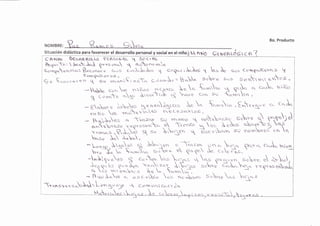 8o. Producto
NOMBRE: Paz Blanco Silvia
Situación didáctica para favorecer el desarrollo personal y social en el niño: MI ARBOL GENEALÓGICO
CAMPO: DESARROLLO PERSONAL y SOCIAL
Aspecto: Identidad personal y autonomía
Competencia: Reconoce sus cualidades y capacidades y las de sus compañeras y compañeros.
Se favorecen y se manifiesta cuando: Habla sobre sus sentimientos.
-Habla con los niños acerca de la familia y pide a cada niño
y comente algo que hace con su familia.
-Elabore árboles genealógicos de la familia. Entregue a cada
uno los materiales necesarios.
-Ayúdeles a trazar su mano y antebrazo sobre el papel, el
antebrazo representa el tronco y los dedos abiertos las
ramas. Pídales que se dibujen y escriban su nombre en la
base del árbol.
-Luego, dígales que dibujen o tracen una hoja para cada miem-
bro de la familia sobre el papel de colores.
-Indíqueles que corten las hojas y las peguen sobre el árbol,
después pueden realizar dibujos sobre cada hoja representando
a los miembros de la familia.
-Ayúdeles a escribir los nombres sobre las hojas
Transversalidad: Lenguaje y comunicación
Materiales: hojas de colores, lápices, crayolas, tijeras.